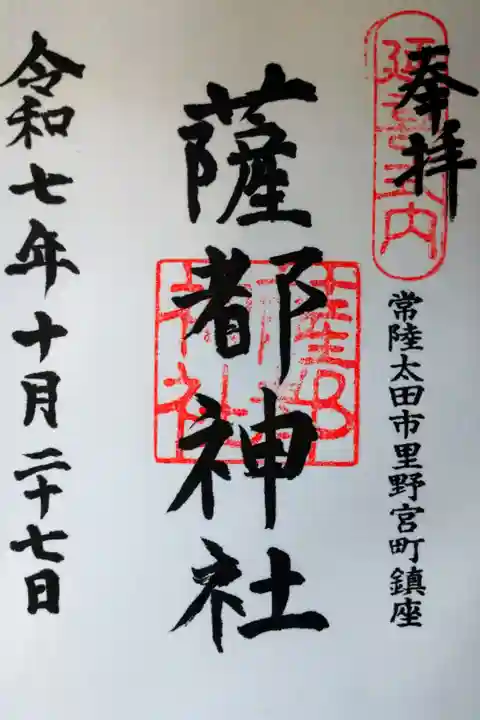 奉拝
延喜式内
常陸太田市里野宮町鎮座
薩都神社
令和七年十月二十七日